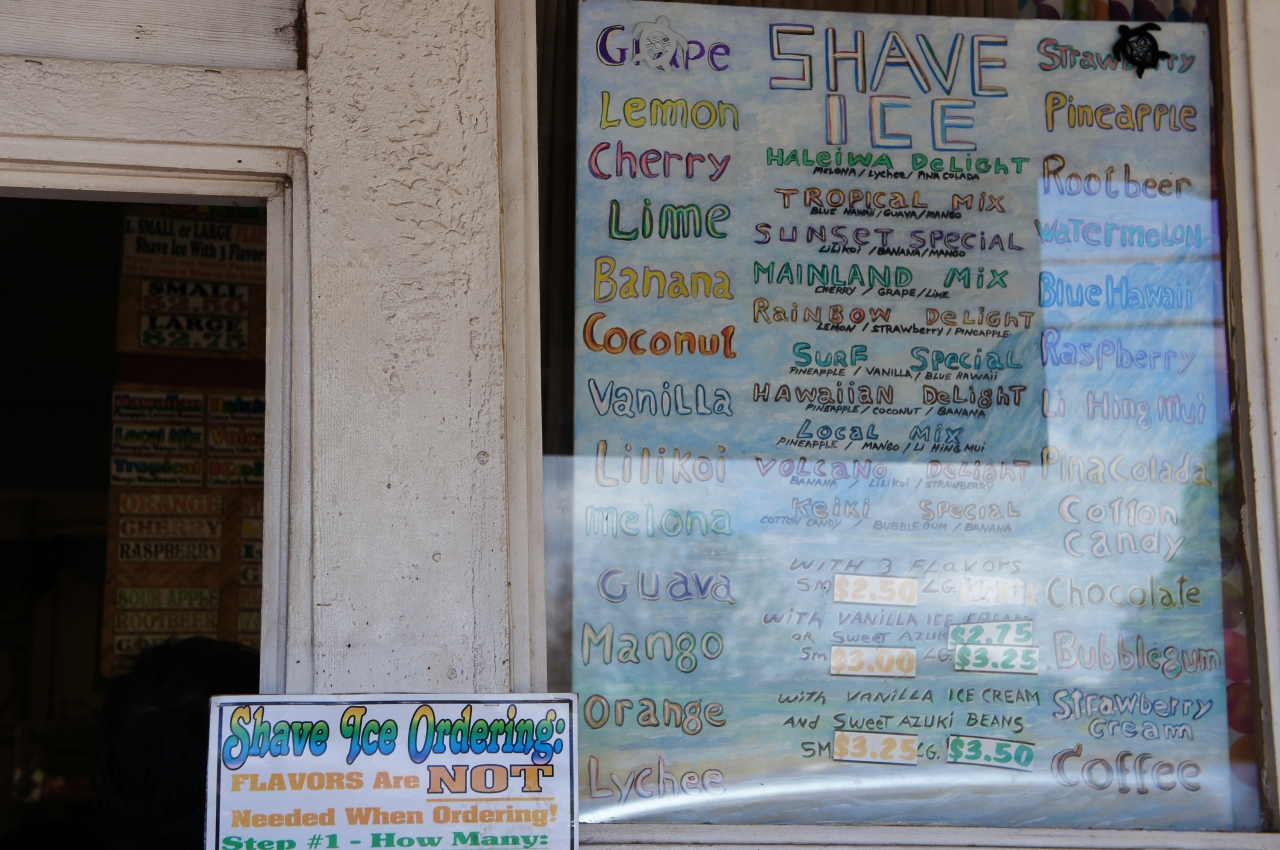 1. SMALL or LARGE
Shave Ice With 3 Flavors
SMALL
LARGE
$2.75
Hawaiian
Local Mix
Tropical
ORANGE
CHERRY
RASPBERRY
SOUR APPLE
ROOTBEER
Shave Ice Ordering:
FLAVORS Are NOT
Needed When Ordering!
Step #1 - How Many:
Grape
Lemon
Cherry
Lime
Banana
Coconut
Vanilla
Lilikoi
melona
Guava
Mango
Orange
Lychee
SHAVE
ICE
HALeiWA DeLiGHT
MELONA / Lychee / PINA COLADA
TROPICAL MIX
BLUE HAWAII / GUAVA / MANGO
SUNSET SPECIAL
LILIKOI / BANANA / MANGO
MAINLAND MIX
CHERRY / GRAPE / LIME
RAINBOW DeLIGHT
LEMON / STRAWBERRY / PINEAPPLE
SURF Special
PINEAPPLE / VANILLA / BLUE HAWAII
HAWAIIAN DeLIGHT
PINEAPPLE / COCONUT / BANANA
LOCAL MIX
PINEAPPLE / MANGO / LI HING MUI
VOLCANO DeLIGHT
BANANA / LILIKOI / STRAWBERRY
Keiki Special
COTTON CANDY / BUBBLE GUM / BANANA
WITH 3 FLAVORS
SM $2.50 LG.
WITH VANILLA ICE CREAM $2.75
OR Sweet AZUK
Sm $3.00 LG $3.25
with VANILLA ICE CREAM
AND SWEET AZUKI BEANS
SM $3.25 LG. $3.50
Strawberry
Pineapple
Rootbeer
Watermelon
Blue Hawaii
Raspberry
Li Hing Mui
Pina Colada
Cotton
Candy
Chocolate
Bubblegum
Strawberry
Cream
Coffee